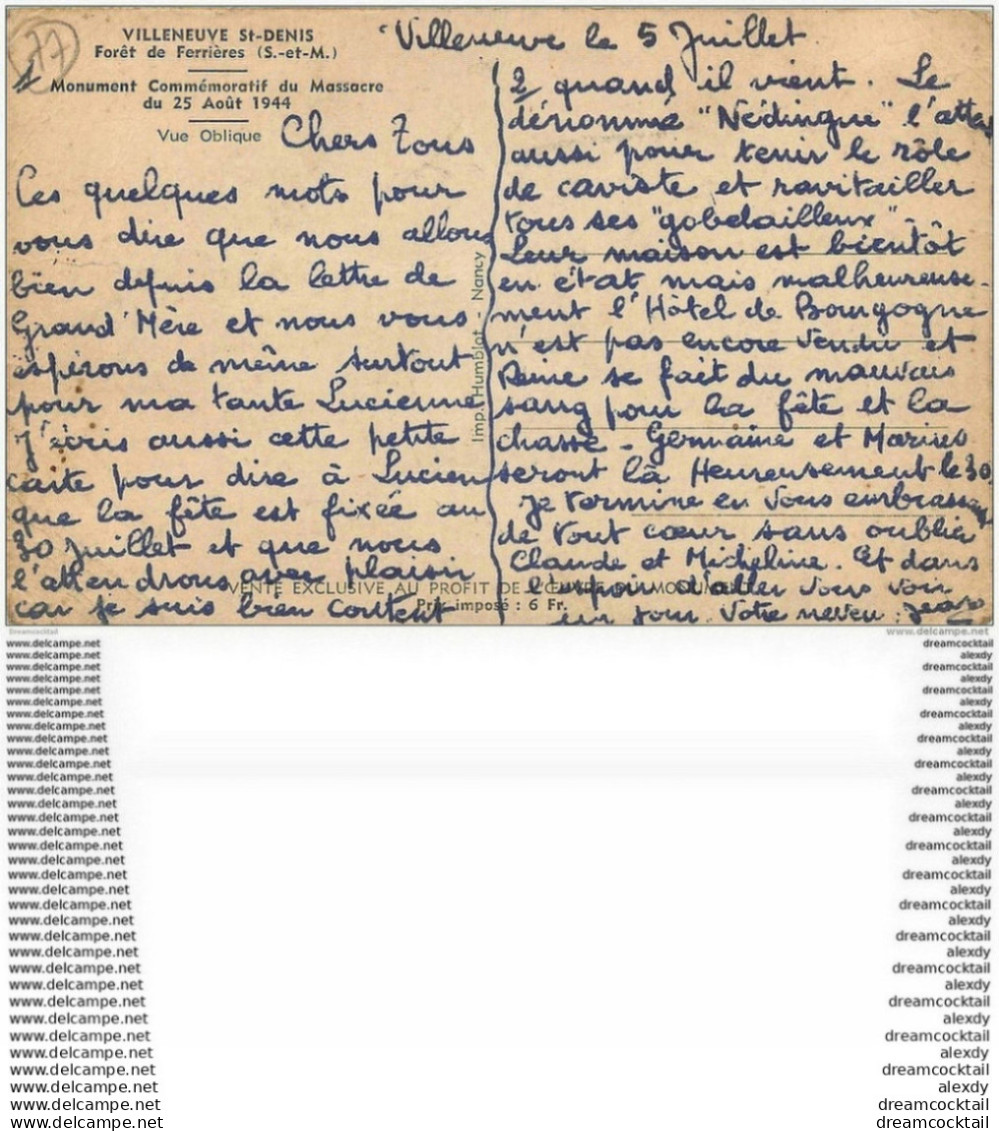 77
VILLENEUVE St-DENIS
Forêt de Ferrières (S.-et-M.)
Monument Commémoratif du Massacre
du 25 Août 1944
Vue Oblique
Villeneuve le 5 Juillet
1
Chers Tous
Ces quelques mots pour
vous dire que nous allons
bien depuis la lettre de
Grand'Mère et nous vous
espérons de même surtout
pour ma tante Lucienne
J'écris aussi cette petite
carte pour dire à Lucien
que la fête est fixée au
30 Juillet et que nous
l'attendrons avec plaisir
car je suis bien content
Imp. Humblot - Nancy
2 quand il vient. Le
dénommé "Nédingue" l'attend
aussi pour tenir le rôle
de caviste et ravitailler
tous ses "gobelailleux".
Leur maison est bientôt
en état mais malheureuse-
ment l'Hôtel de Bourgogne
n'est pas encore vendu et
Reine se fait du mauvais
sang pour la fête et la
chasse - Germaine et Marius
seront là Heureusement le 30
Je termine en vous embrassant
de tout cœur sans oublier
Claude et Micheline. Et dans
l'espoir d'aller vous voir
un jour. Votre neveu : Jean
VENTE EXCLUSIVE AU PROFIT DE L'ŒUVRE DU MONUMENT
Prix imposé : 6 Fr.
Dreamcocktail
www.delcampe.net
www.delcampe.net dreamcocktail
www.delcampe.net alexdy
www.delcampe.net dreamcocktail
www.delcampe.net alexdy
www.delcampe.net dreamcocktail
www.delcampe.net alexdy
www.delcampe.net dreamcocktail
www.delcampe.net alexdy
www.delcampe.net dreamcocktail
www.delcampe.net alexdy
www.delcampe.net dreamcocktail
www.delcampe.net alexdy
www.delcampe.net dreamcocktail
www.delcampe.net alexdy
www.delcampe.net dreamcocktail
www.delcampe.net alexdy
www.delcampe.net dreamcocktail
www.delcampe.net alexdy
www.delcampe.net dreamcocktail
www.delcampe.net alexdy
www.delcampe.net dreamcocktail
www.delcampe.net alexdy
www.delcampe.net dreamcocktail
www.delcampe.net alexdy
www.delcampe.net dreamcocktail
www.delcampe.net alexdy
www.delcampe.net dreamcocktail
www.delcampe.net alexdy
www.delcampe.net dreamcocktail
www.delcampe.net alexdy
www.delcampe.net dreamcocktail
www.delcampe.net alexdy
www.delcampe.net dreamcocktail
www.delcampe.net alexdy
www.delcampe.net dreamcocktail
www.delcampe.net alexdy
www.delcampe.net dreamcocktail
www.delcampe.net dreamcocktail